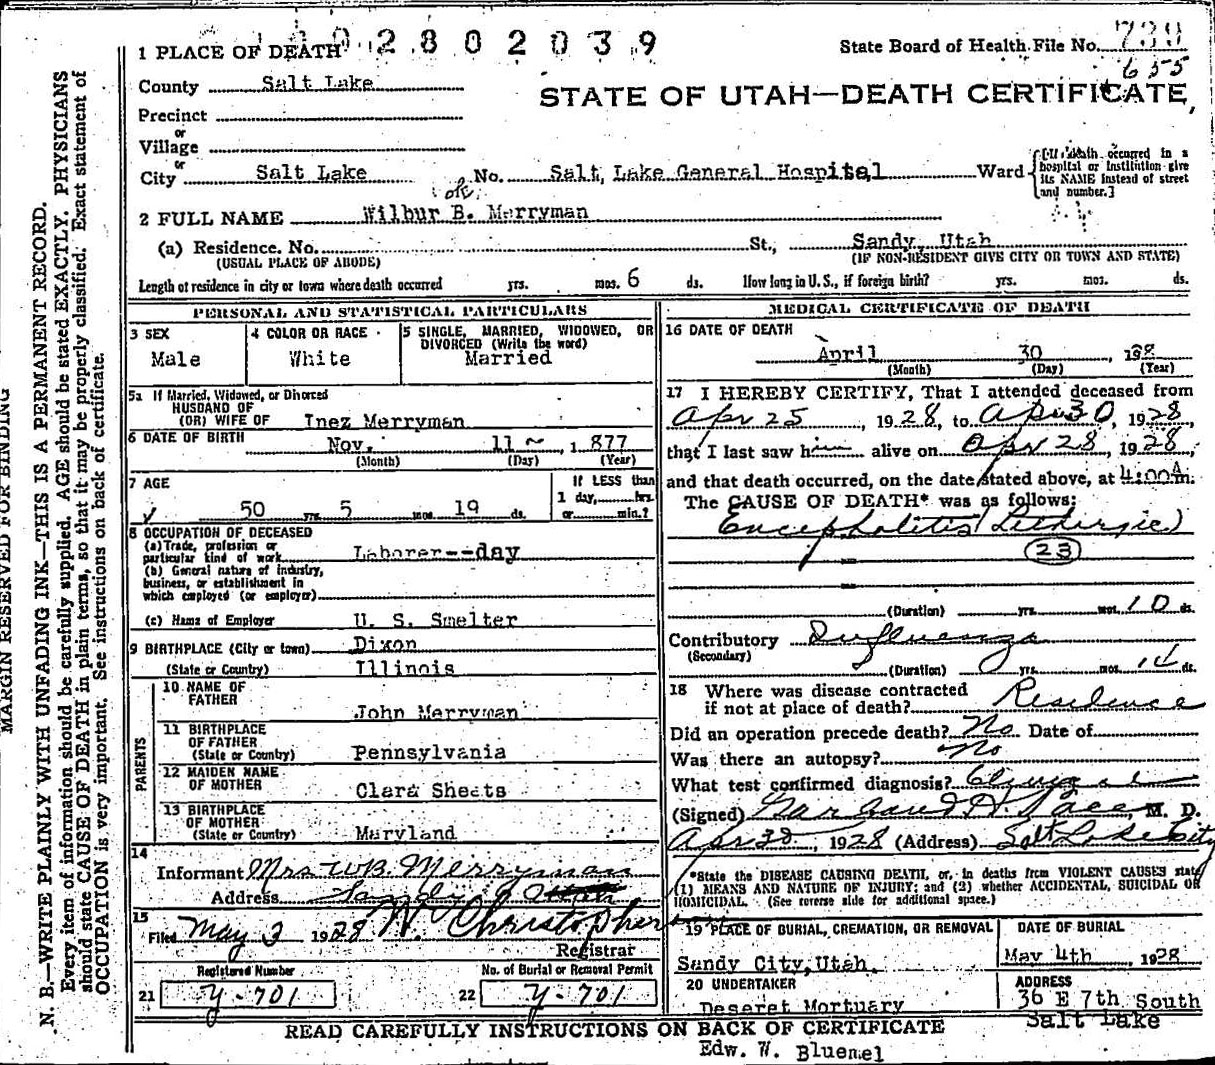 MARGIN RESERVED FOR BINDING
N. B.—WRITE PLAINLY WITH UNFADING INK—THIS IS A PERMANENT RECORD.
Every item of information should be carefully supplied. AGE should be stated EXACTLY. PHYSICIANS
should state CAUSE OF DEATH in plain terms, so that it may be properly classified. Exact statement of
OCCUPATION is very important. See instructions on back of certificate.
1 PLACE OF DEATH 2802039
State Board of Health File No. 739
655
County Salt Lake
STATE OF UTAH—DEATH CERTIFICATE
Precinct
or
Village
or
City Salt Lake No. Salt Lake General Hospital Ward [If death occurred in a hospital or institution give its NAME instead of street and number.]
2 FULL NAME Wilbur B. Merryman
(a) Residence. No. St., Sandy, Utah
(USUAL PLACE OF ABODE) (IF NON-RESIDENT GIVE CITY OR TOWN AND STATE)
Length of residence in city or town where death occurred yrs. mos. 6 ds. How long in U. S., if foreign birth? yrs. mos. ds.
PERSONAL AND STATISTICAL PARTICULARS
3 SEX
Male
4 COLOR OR RACE
White
5 SINGLE, MARRIED, WIDOWED, OR
DIVORCED (Write the word)
Married
5a If Married, Widowed, or Divorced
HUSBAND OF
(OR) WIFE OF Inez Merryman
6 DATE OF BIRTH Nov. 11 1877
(Month) (Day) (Year)
7 AGE
50 yrs. 5 mos. 19 ds.
If LESS than
1 day, hrs.
or min.?
8 OCCUPATION OF DECEASED
(a) Trade, profession or
particular kind of work Laborer--day
(b) General nature of industry,
business, or establishment in
which employed (or employer)
(c) Name of Employer U. S. Smelter
9 BIRTHPLACE (City or town) Dixon
(State or Country) Illinois
PARENTS
10 NAME OF
FATHER John Merryman
11 BIRTHPLACE
OF FATHER
(State or Country) Pennsylvania
12 MAIDEN NAME
OF MOTHER Clara Sheets
13 BIRTHPLACE
OF MOTHER
(State or Country) Maryland
14
Informant Mrs W.B. Merryman
Address Sandy Utah
15
Filed May 3 1928 W. Christopherson
Registrar
Registered Number
21 Y-701
No. of Burial or Removal Permit
22 Y-701
MEDICAL CERTIFICATE OF DEATH
16 DATE OF DEATH
April 30, 1928
(Month) (Day) (Year)
17 I HEREBY CERTIFY, That I attended deceased from
Apr 25, 1928, to Apr 30, 1928
that I last saw him alive on Apr 28, 1928
and that death occurred, on the date stated above, at 4:00 A m.
The CAUSE OF DEATH* was as follows:
Encephalitis (Lethargic)
23
(Duration) yrs. mos. 10 ds.
Contributory Influenza
(Secondary)
(Duration) yrs. mos. 14 ds.
18 Where was disease contracted
if not at place of death? Residence
Did an operation precede death? No Date of
Was there an autopsy? No
What test confirmed diagnosis? Clinical
(Signed) Garland H. Pace, M. D.
Apr 30, 1928 (Address) Salt Lake City
*State the DISEASE CAUSING DEATH, or, in deaths from VIOLENT CAUSES state
(1) MEANS AND NATURE OF INJURY; and (2) whether ACCIDENTAL, SUICIDAL OR
HOMICIDAL. (See reverse side for additional space.)
19 PLACE OF BURIAL, CREMATION, OR REMOVAL
Sandy City, Utah
DATE OF BURIAL
May 4th, 1928
20 UNDERTAKER
Deseret Mortuary
ADDRESS
36 E 7th South
Salt Lake
READ CAREFULLY INSTRUCTIONS ON BACK OF CERTIFICATE
Edw. W. Bluemel